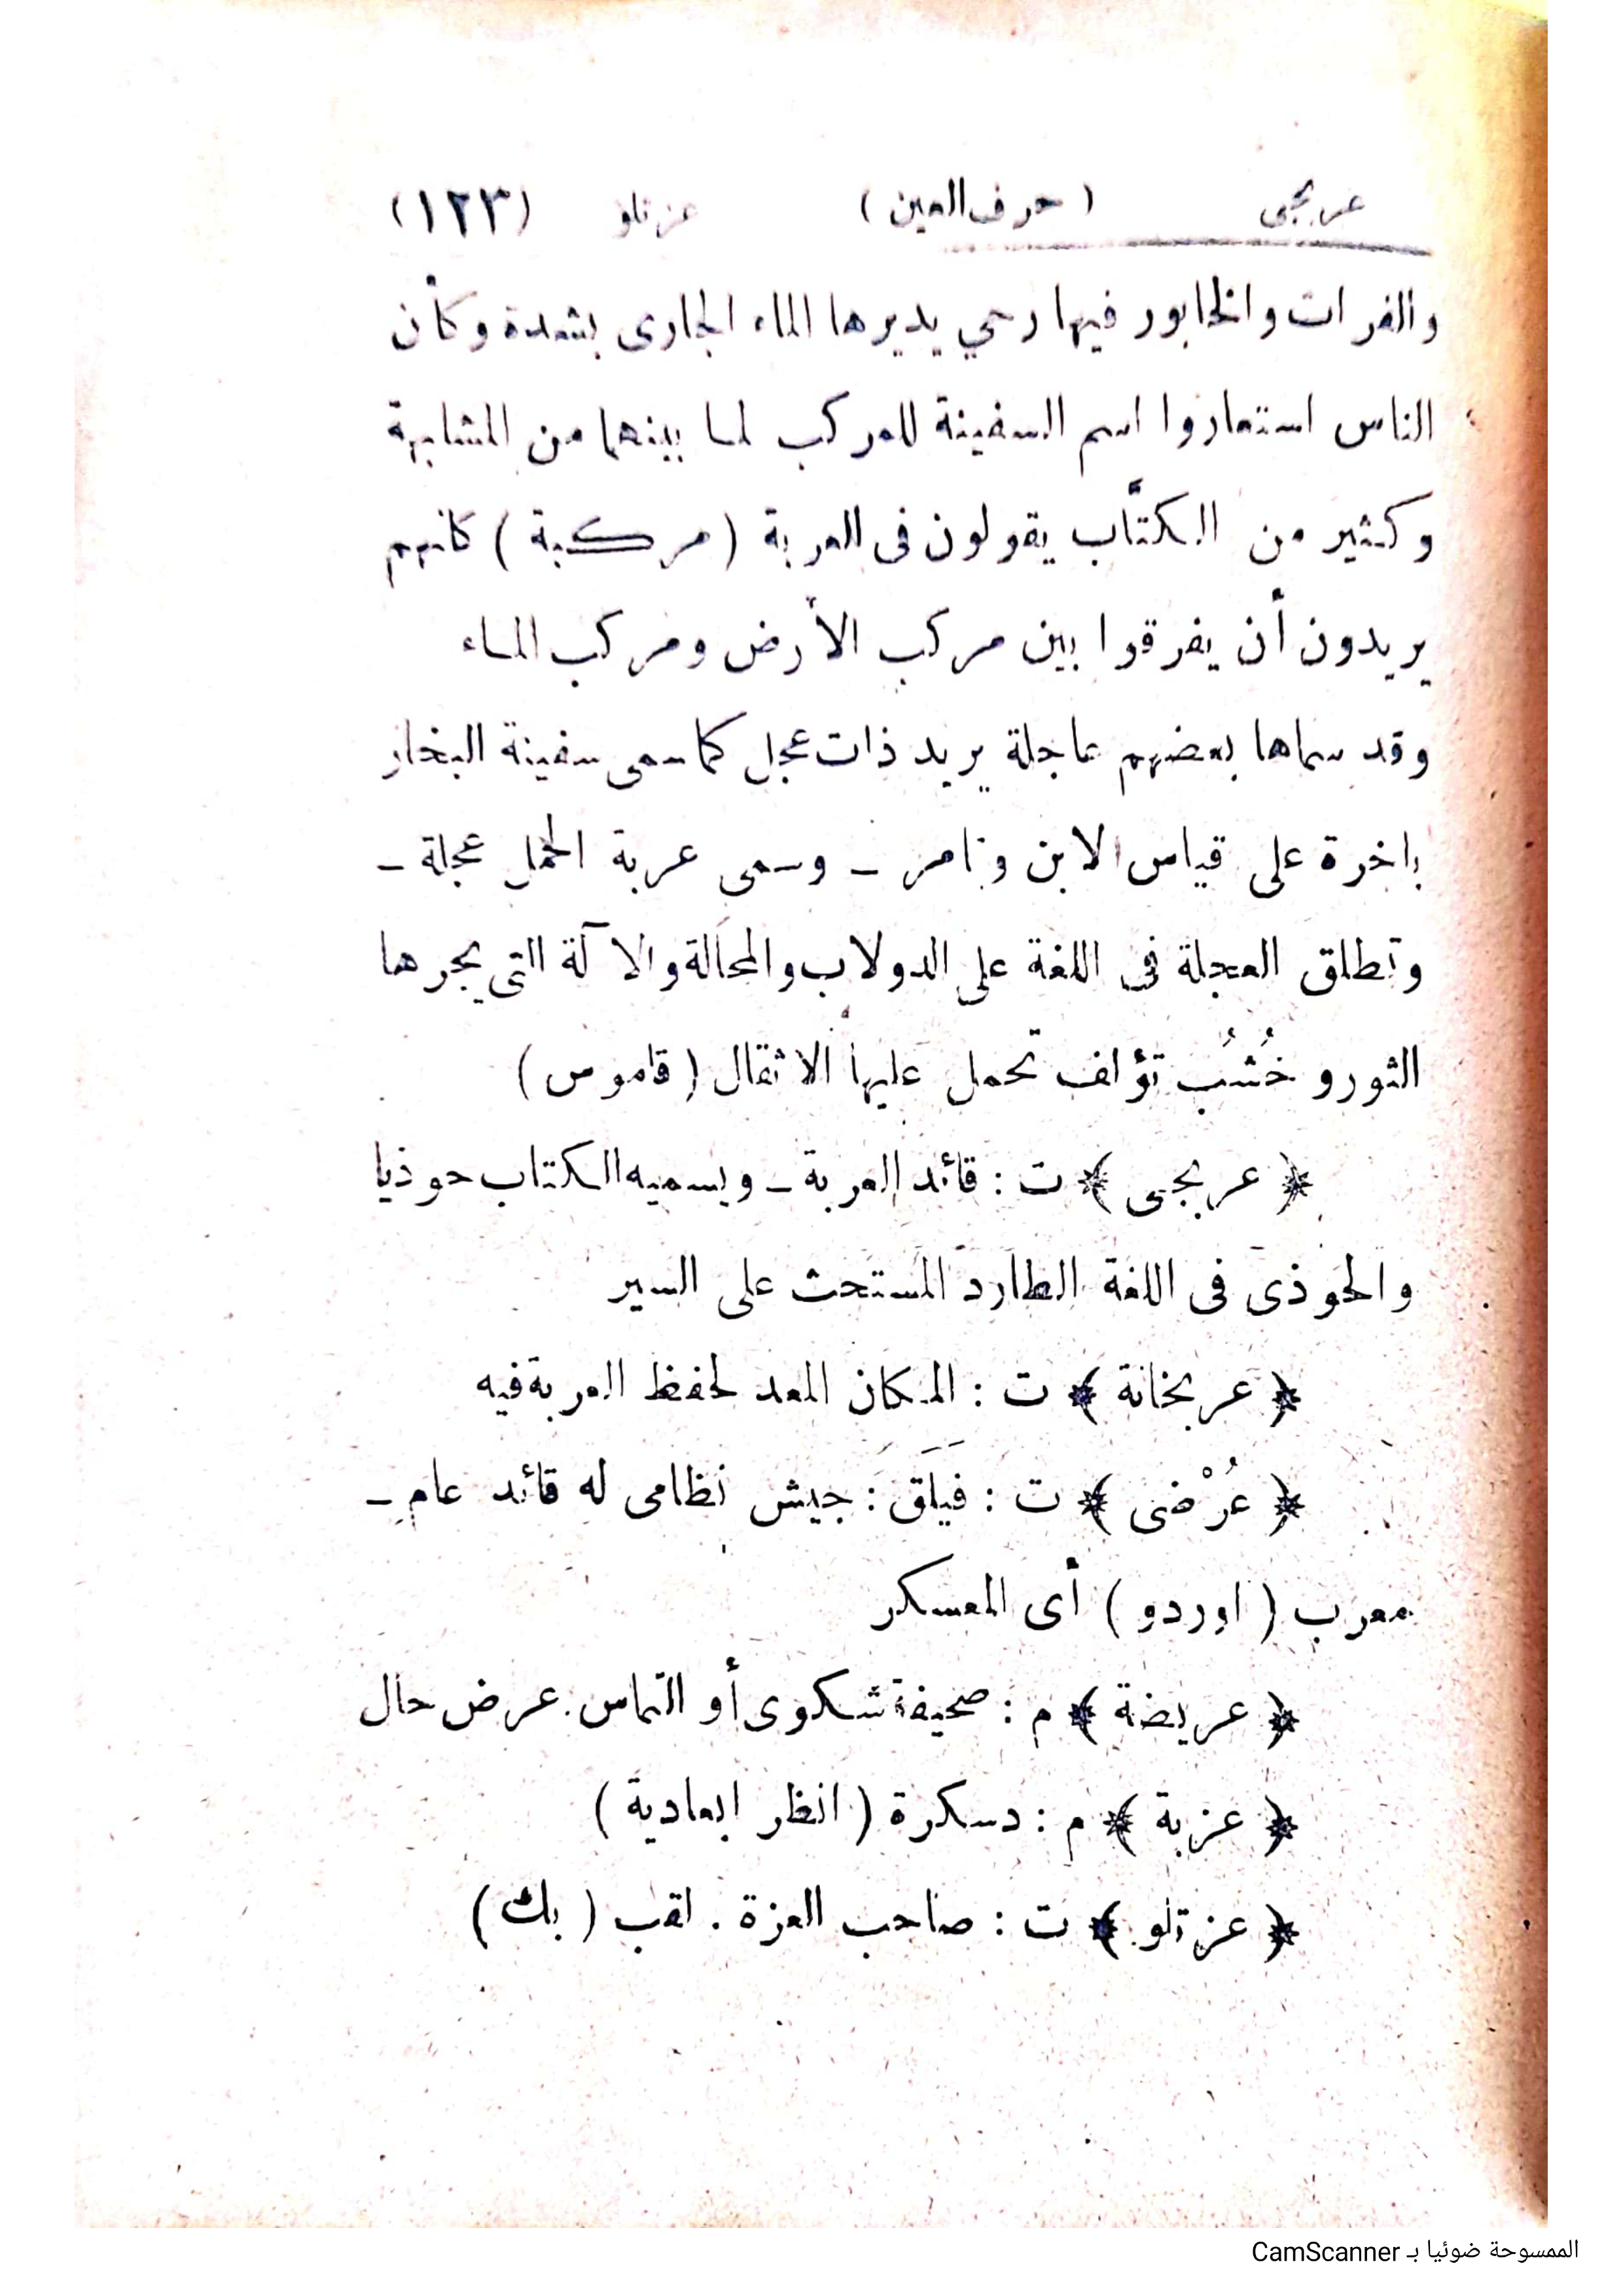 عربجى ( حرف العين ) عزتلو (١٢٣)
والفرات والخابور فيها رحي يديرها الماء الجارى بشدة وكأن
الناس استعاروا اسم السفينة للمركب لما بينهما من المشابهة
وكثير من الكتَّاب يقولون فى العربة ( مركبة ) كانهم
يريدون أن يفرقوا بين مركب الأرض ومركب الماء
وقد سماها بعضهم عاجلة يريد ذات عجل كما سمى سفينة البخار
باخرة على قياس لابن وتامر ـ وسمى عربة الحمل عجلة ـ
وتطلق العجلة فى اللغة على الدولاب والمحالة والآلة التى يجرها
الثور و خُشُب تؤلف تحمل عليها الاثقال ( قاموس )
﴿ عربجى ﴾ ت : قائد العربة ـ ويسميه الكتاب حوذيا
والحوذى فى اللغة الطارد المستحث على السير
﴿ عربخانة ﴾ ت : المكان المعد لحفظ العربة فيه
﴿ عُرْضى ﴾ ت : فَيلَق : جيش نظامى له قائد عام ـ
معرب ( اوردو ) أى المعسكر
﴿ عريضة ﴾ م : صحيفة شكوى أو التماس . عرض حال
﴿ عزبة ﴾ م : دسكرة ( انظر ابعادية )
﴿ عزتلو ﴾ ت : صاحب العزة . لقب ( بك )
الممسوحة ضوئيا بـ CamScanner